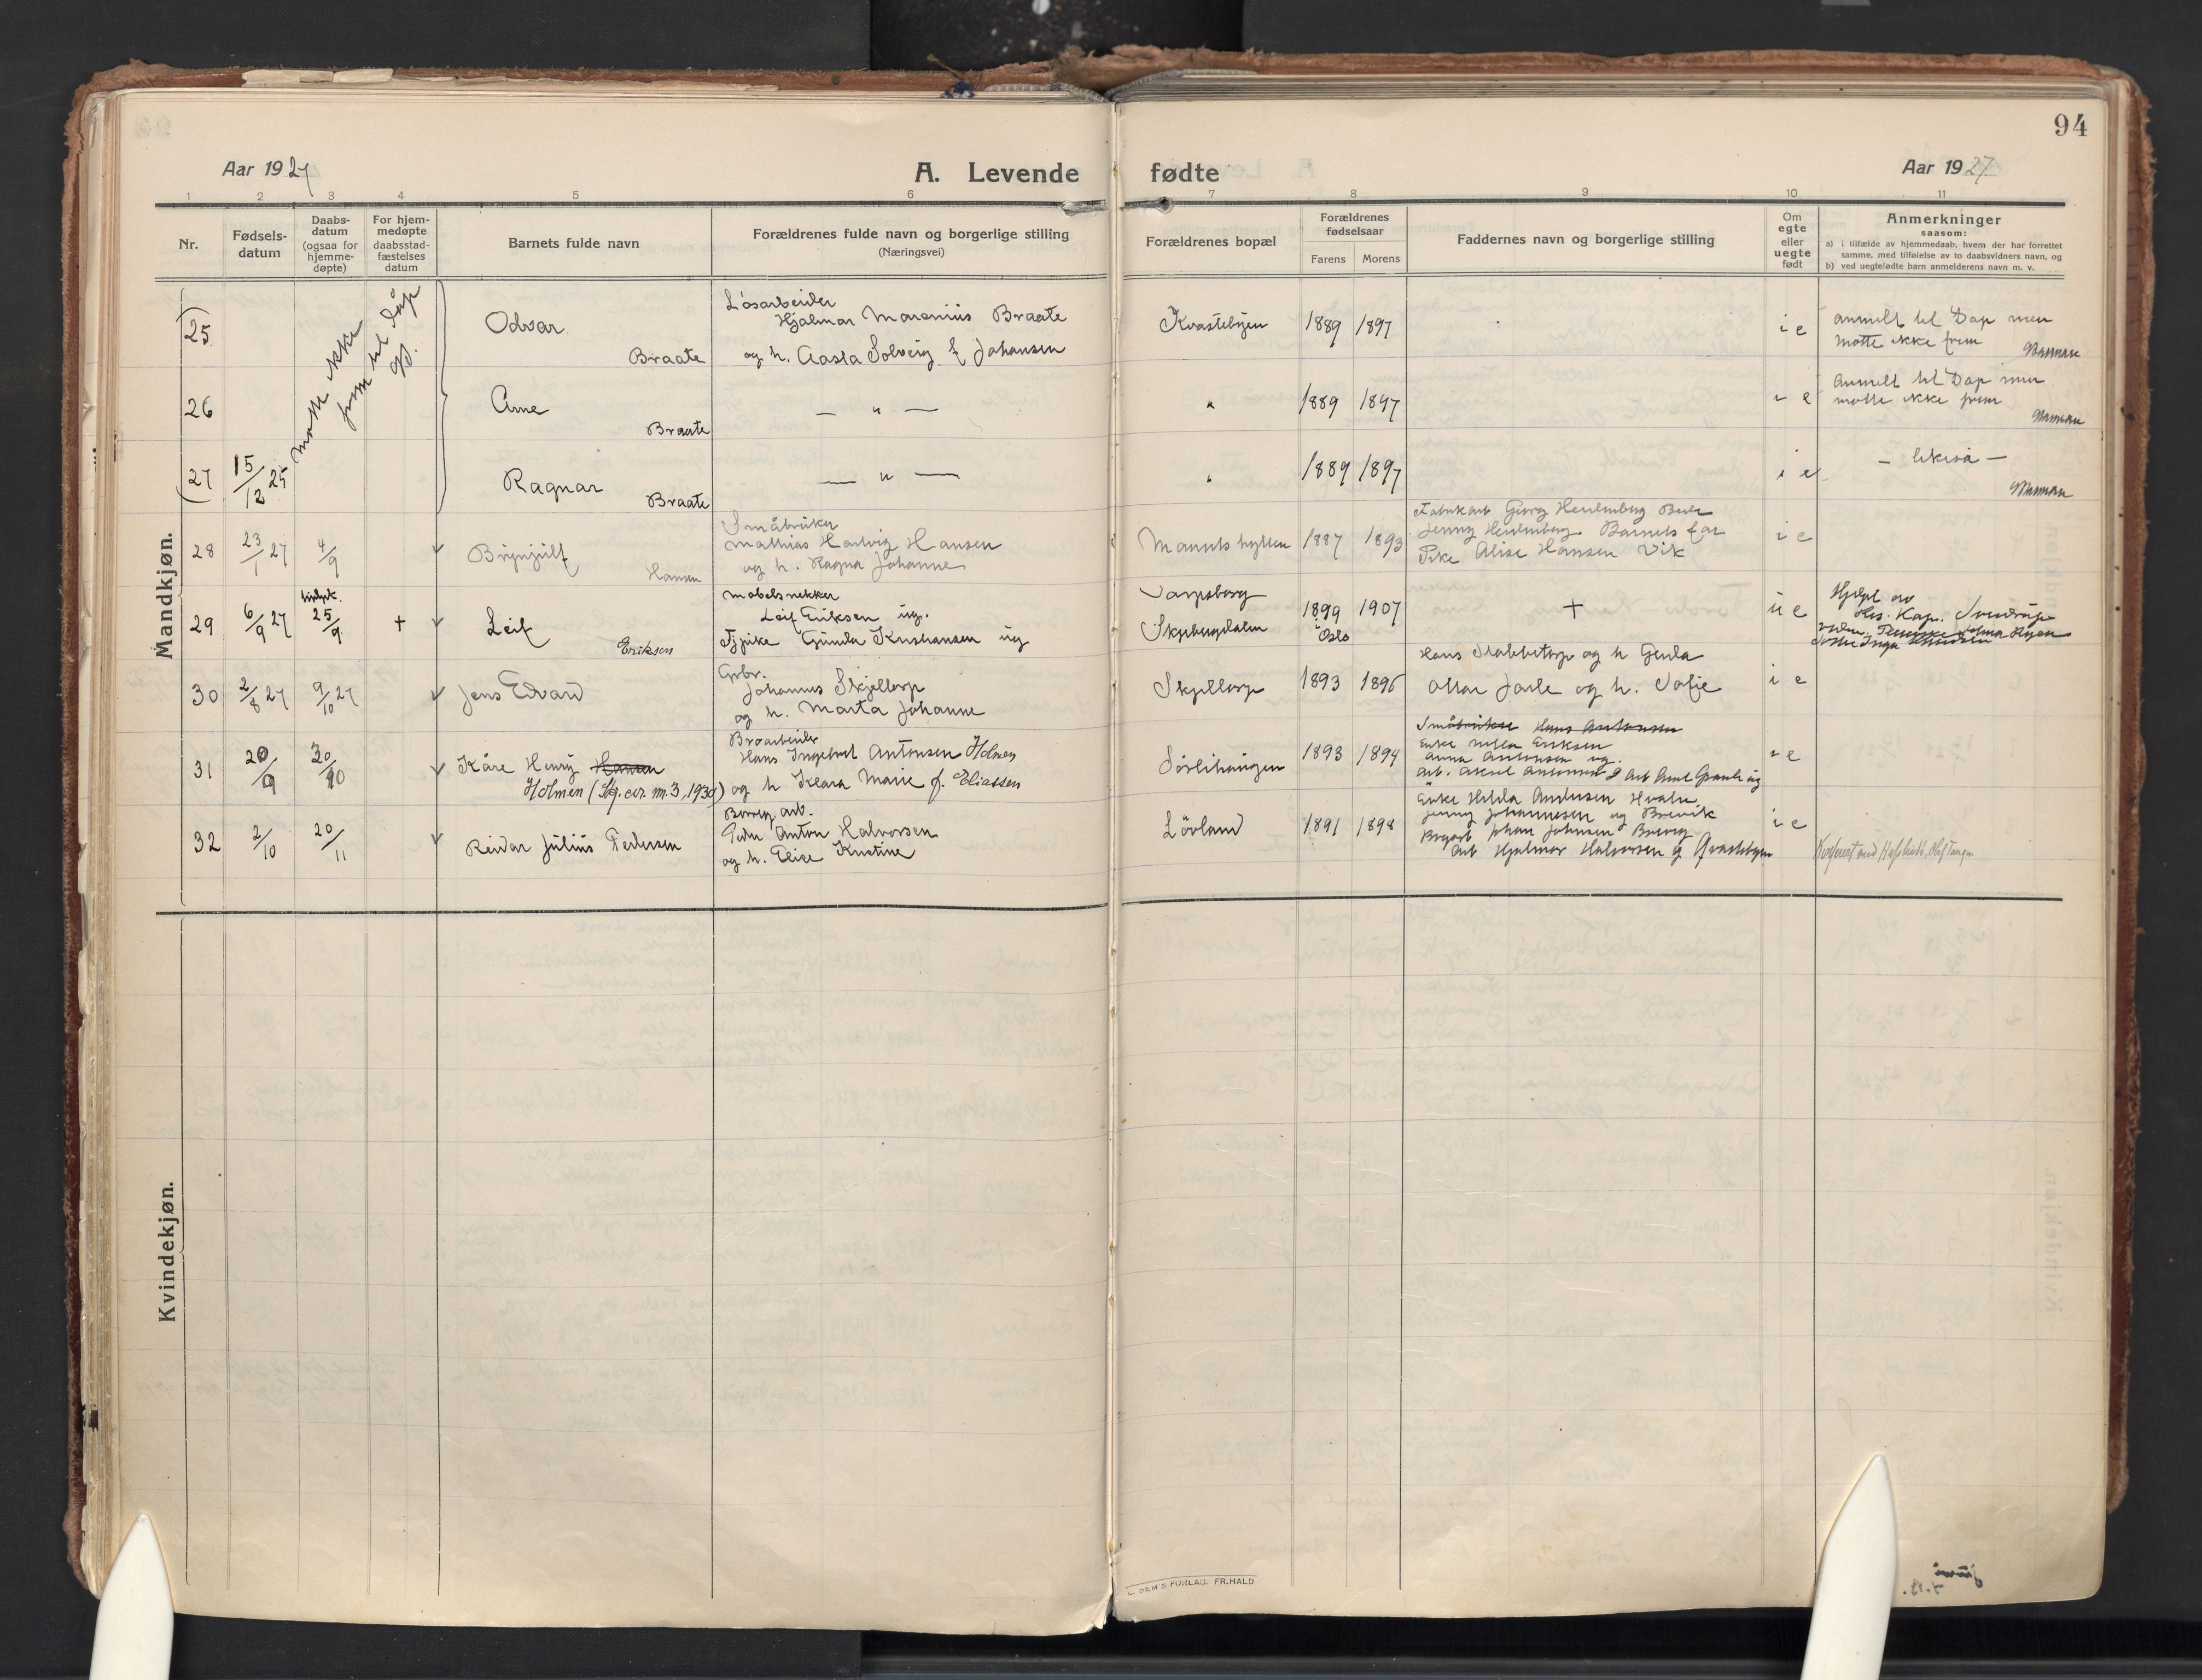 94
Aar 1927
A. Levende fødte
Aar 1927
1 2 3 4 5 6 7 8 9 10 11
Nr.
Fødsels-
datum
Daabs-
datum
(ogsaa for
hjemme-
døpte)
For hjem-
medøpte
daabsstad-
fæstelses
datum
Barnets fulde navn
Forældrenes fulde navn og borgerlige stilling
(Næringsvei)
Forældrenes bopæl
Forældrenes
fødselsaar
Farens Morens
Faddernes navn og borgerlige stilling
Om
egte
eller
uegte
født
Anmerkninger
saasom:
a) i tilfælde av hjemmedaab, hvem der har forrettet
samme, med tilføielse av to daabsvidners navn, og
b) ved uegtefødte barn anmelderens navn m. v.
Mandkjøn.
møtte ikke
frem til dåp
25
Odvar
Braate
Løsarbeider
Hjalmar Marenius Braate
og h. Aasta Solveig f Johansen
Kvastebyen
1889 1897
i e
anmelt til Dap men
møtte ikke frem
26
Arne
Braate
— " —
"
1889 1897
i e
anmelt til Dap men
møtte ikke frem
27
15/12 25
Ragnar
Braate
— " —
"
1889 1897
i e
— likeså —
28
23/1 27
4/9
Brynjulf
Hansen
Småbruker
Mathias Hartvig Hansen
og h. Ragna Johanne
1887 1893
Barnets far
Pike Alise Hansen Vik
i e
29
6/9 27
25/9
+
Leif
Eriksen
Møbelsnekker
Leif Eriksen ug.
Tjpike Gunda Kristiansen ug
Sarpsborg
1899 1907
Oslo
+
u e
Hjdpt av
Res. Kap.
30
2/8 27
9/10 27
Jens Edvard
Grbr.
Johannes Skjeltorp
og h. Marta Johanne
Skjeltorp
1893 1896
Hans og h Gerda
Ottar Jarle og h. Sofie
i e
31
20/9
30/10
Kåre Henry Hansen
Holmen (Skr. m. 3, 1930)
Broarbeider
Hans Ingebret Antonsen Holmen
og h Klara Marie f. Eliassen
Sørlihaugen
1893 1894
Småbruker Hans Antonsen
Enke Eriksen
Anna Antonsen ug.
i e
32
2/10
20/11
Reidar Julius Pedersen
Borreg. arb.
Peder Anton Halvorsen
og h. Elise Kristine
Løvland
1891 1898
Enke Hilda Andersen
Jenny Johannesen ug Brevik
Johan Johnsen
Arb Hjalmar Halvorsen g
i e
Kvindekjøn.
FORLAG. FR.HALD